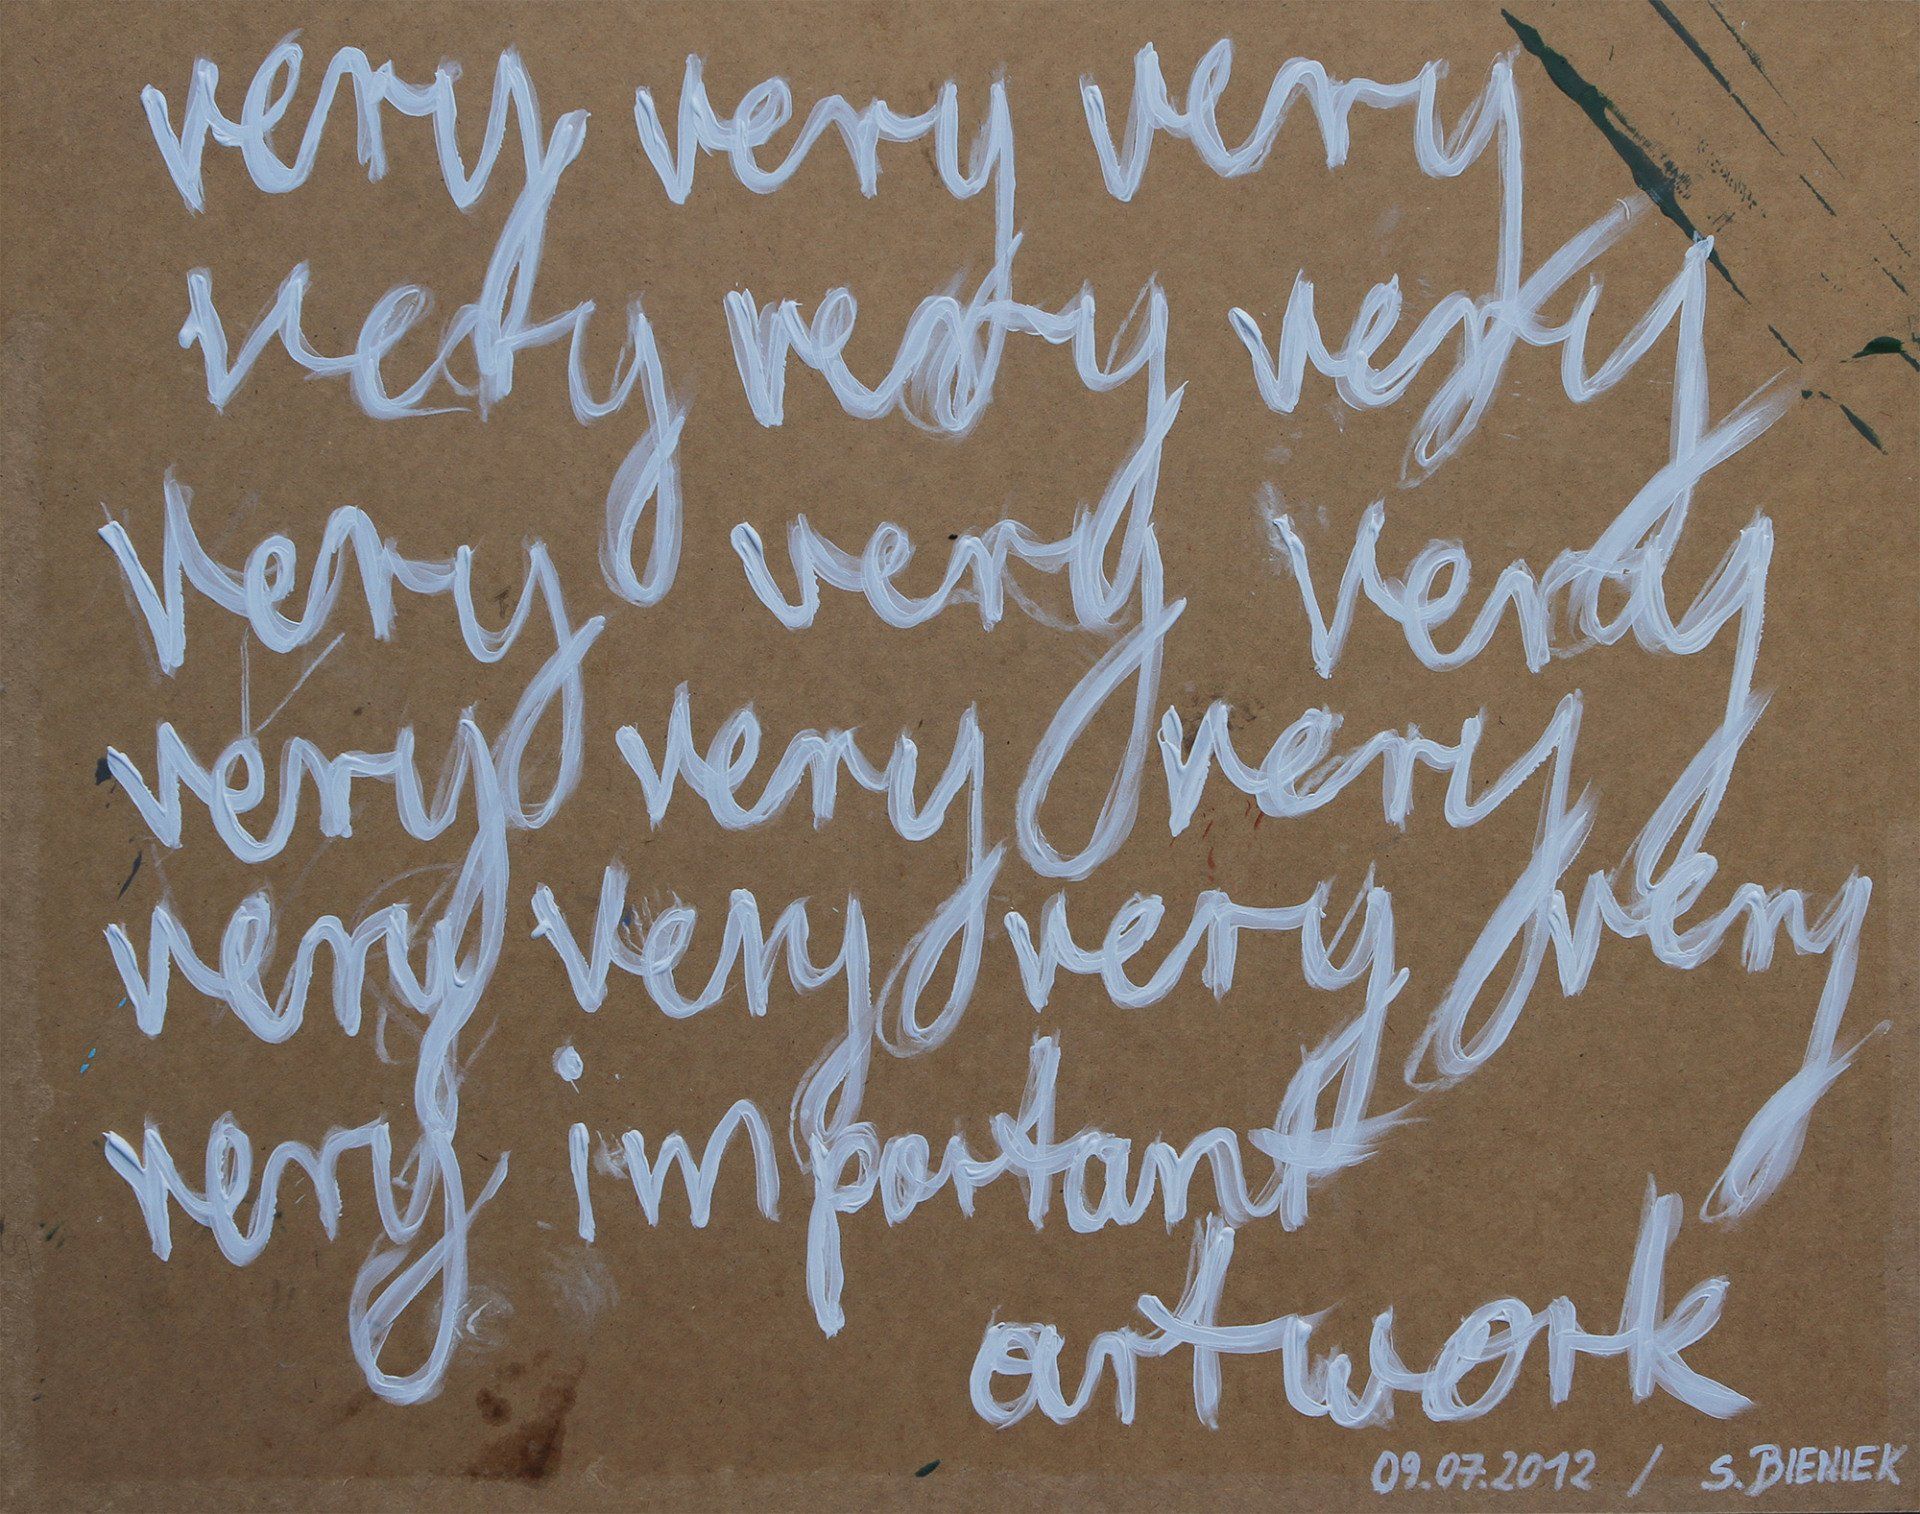 very very very
very very very
very very very
very very very
very very very very
very important
artwork
09.07.2012 / S. BIENIEK